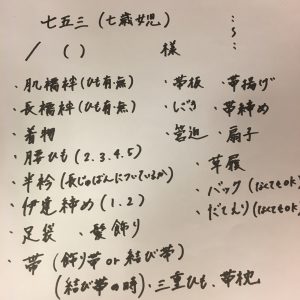 七五三(七歳女児)
/ ( ) 様
・肌襦袢(ひも有・無)
・長襦袢(ひも有・無)
・着物
・腰ひも(2.3.4.5)
・半衿(長じゅばんについているか)
・伊達締め(1.2)
・足袋 ・髪飾り
・帯(飾り帯or結び帯)
(結び帯の時)・三重ひも、帯枕
・帯板 ・帯揚げ
・しごき ・帯締め
・筥迫 ・扇子
・草履
・バック(なくてもOK)
・だてえり(なくてもOK)